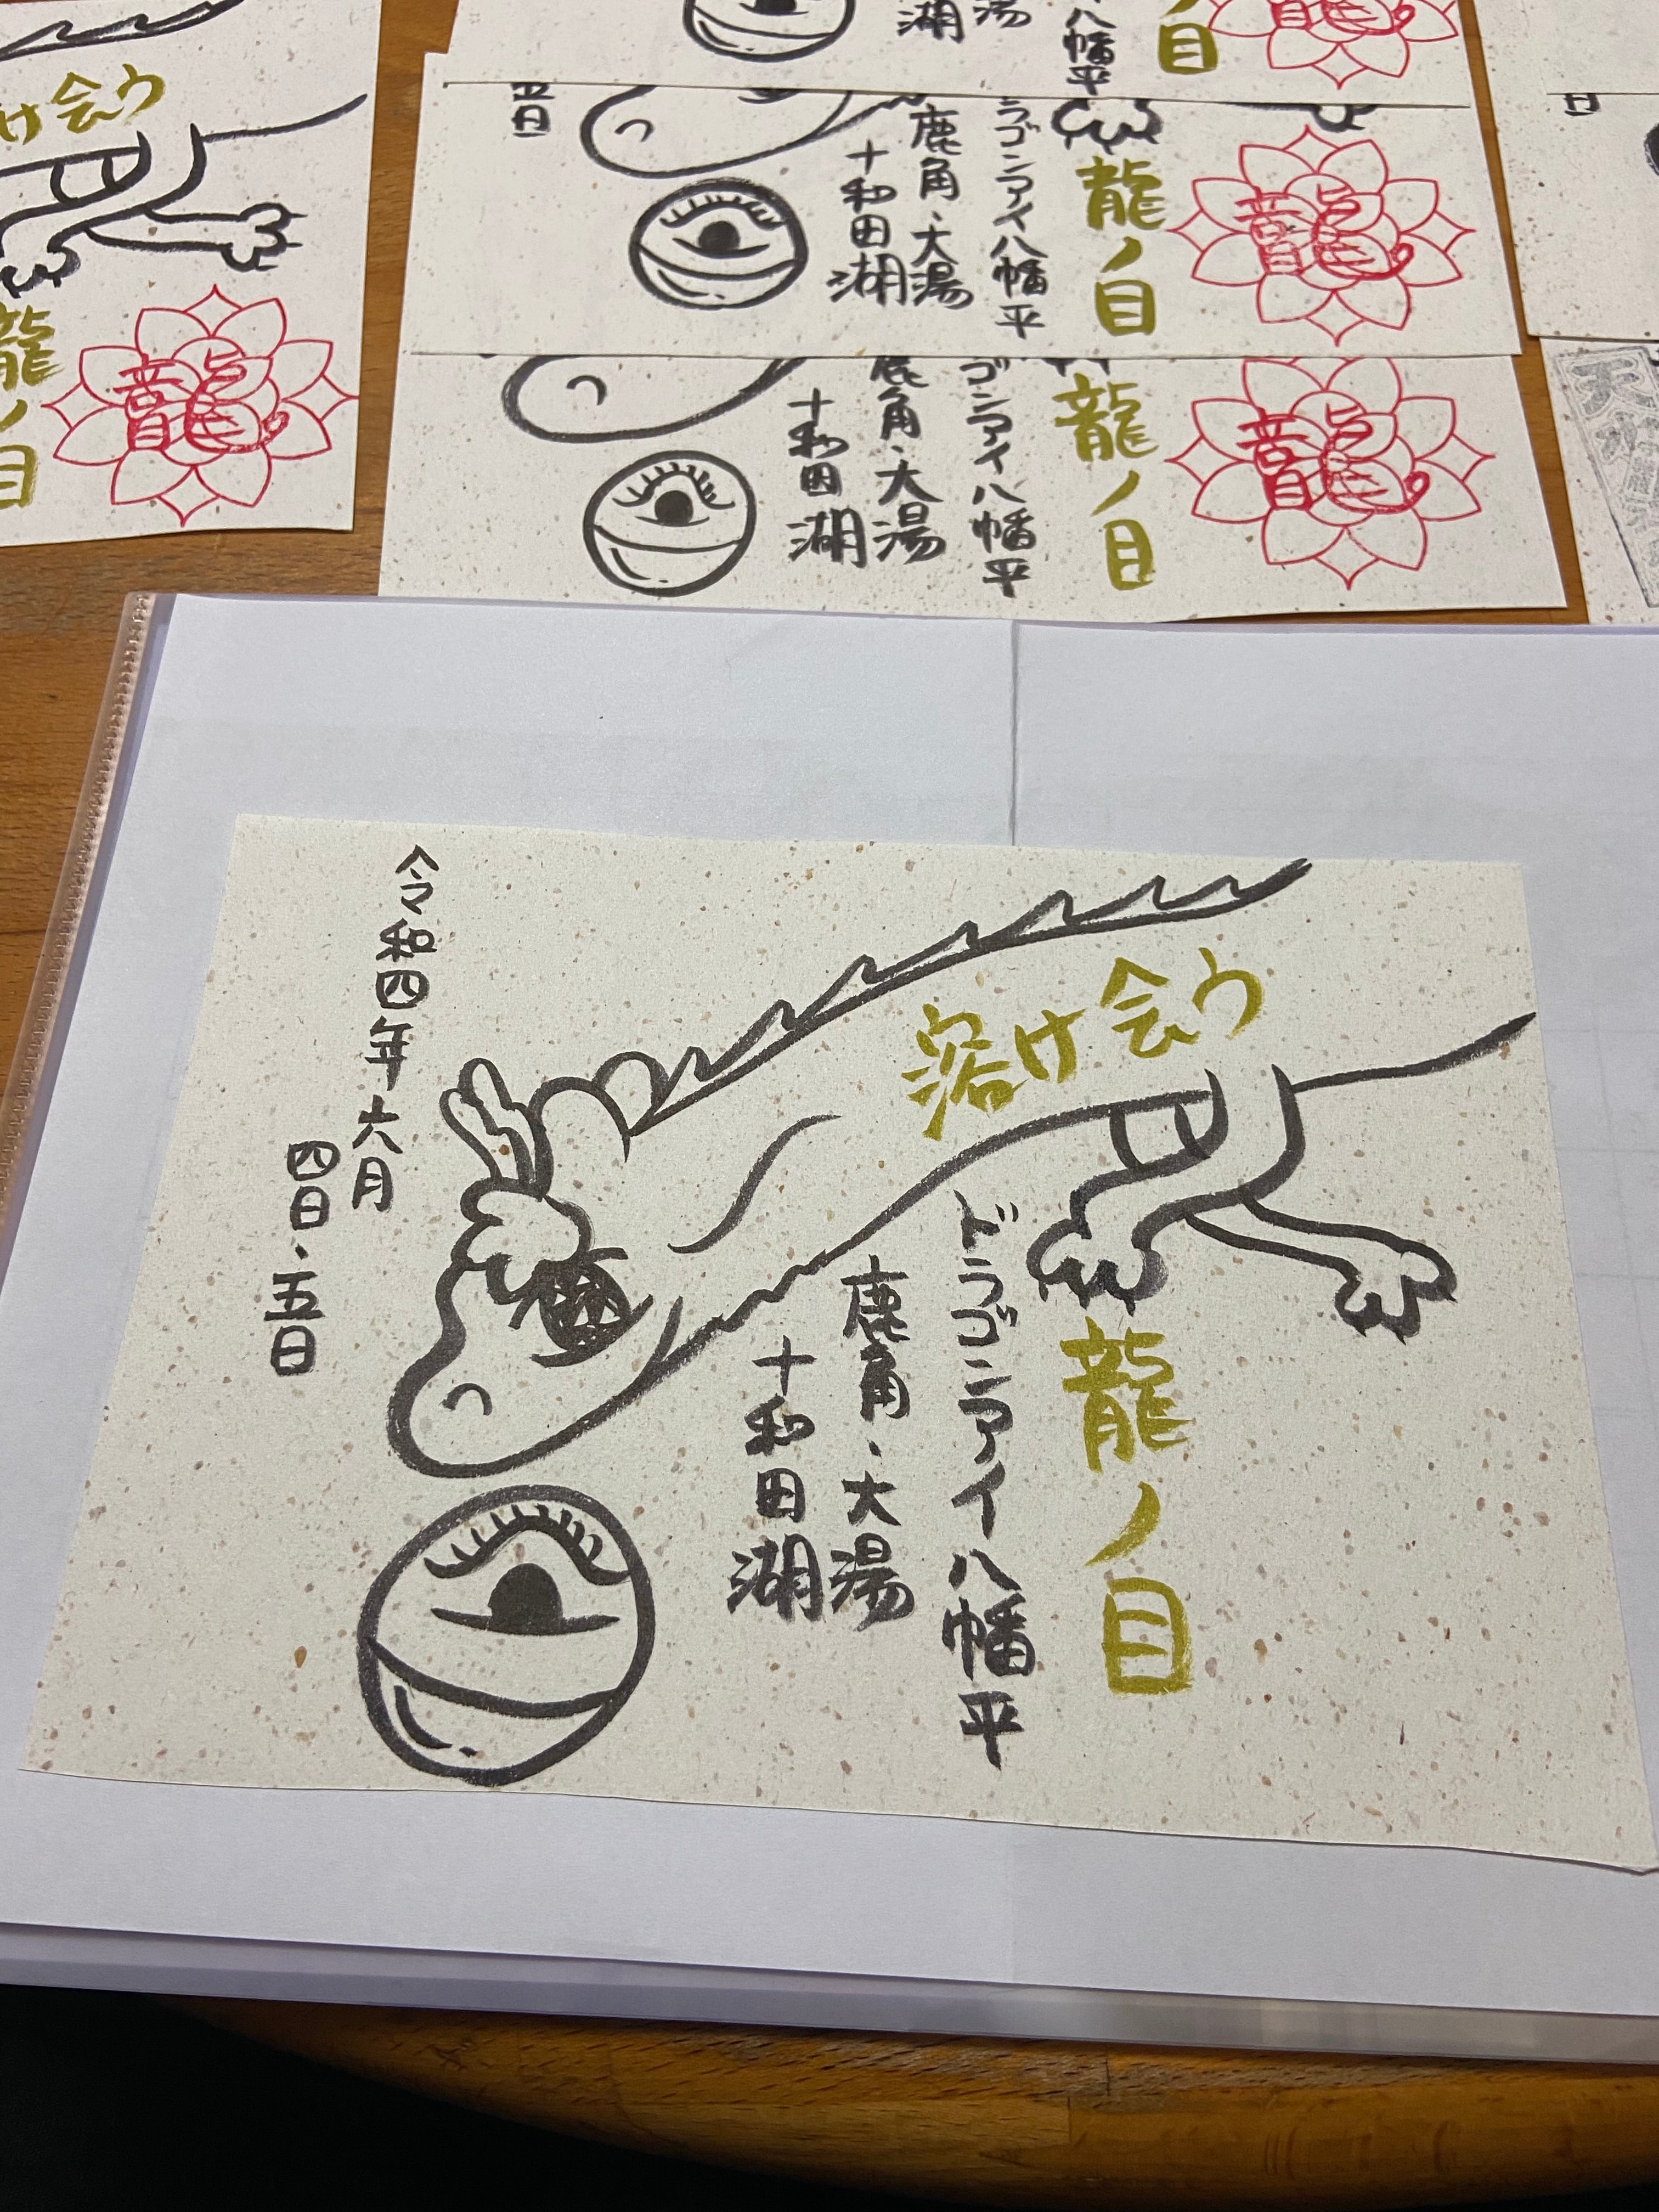 け会う
龍
ノ
目
龍
湖
湯
八幡平
ノ目
龍
五日
十和田湖
鹿角・大湯
ラゴンアイ八幡平
龍ノ目
龍
十和田湖
鹿角・大湯
ゴンアイ八幡平
龍ノ目
龍
天
日
溶け会う
龍ノ目
ドラゴンアイ八幡平
鹿角・大湯
十和田湖
令和四年六月
四日・五日